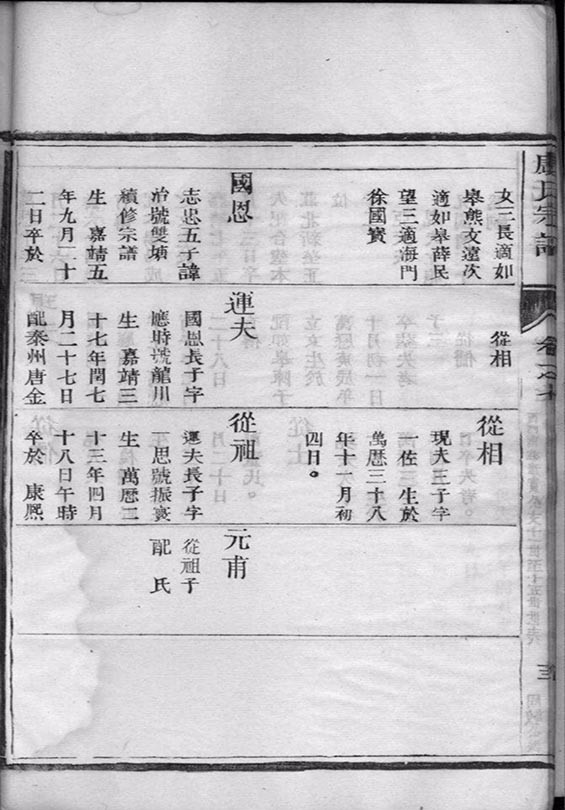 女二長適如
皋熊文遠次
適如皋薛民
望三適海門
徐國賓
國恩
志忠五子諱
冶號雙塘
續修宗譜
生 嘉靖五
年九月二十
二日卒於
從相
運夫
國恩長子字
應時號龍川
生 嘉靖三
十七年閏七
月二十七日
配泰州唐金
從相
現夫三子字
一佐 生於
萬曆三十八
年十一月初
四日。
從祖
運夫長子字
一思號振寰
生 萬曆二
十三年四月
十八日午時
卒於 康熙
元甫
從祖子
配 氏
氏宗譜
卷一之十
三